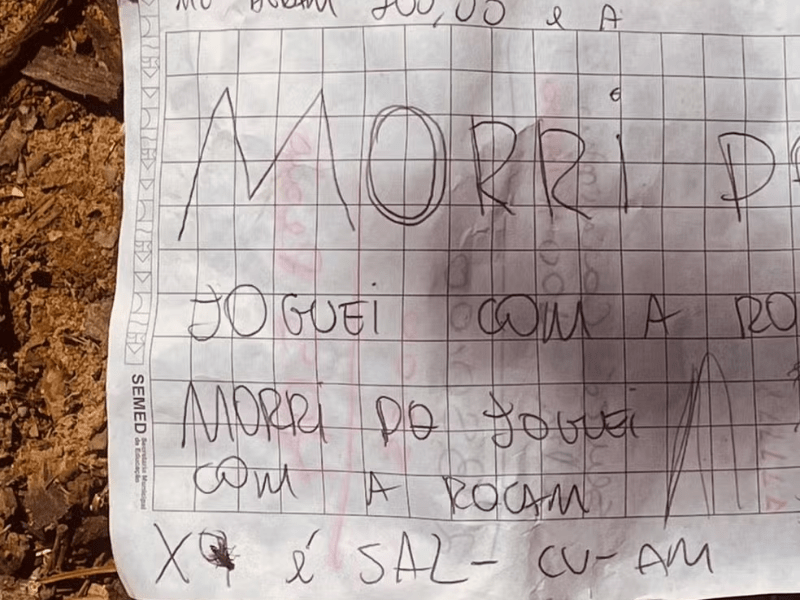 MO DERAM 200,00 e A
MORRi DO
JOGUEi COM A RO
MORRi DO JOGUEi
COM A ROCAM
é SAL- CU-AM
SEMED
Secretaria Municipal
de Educação
77777